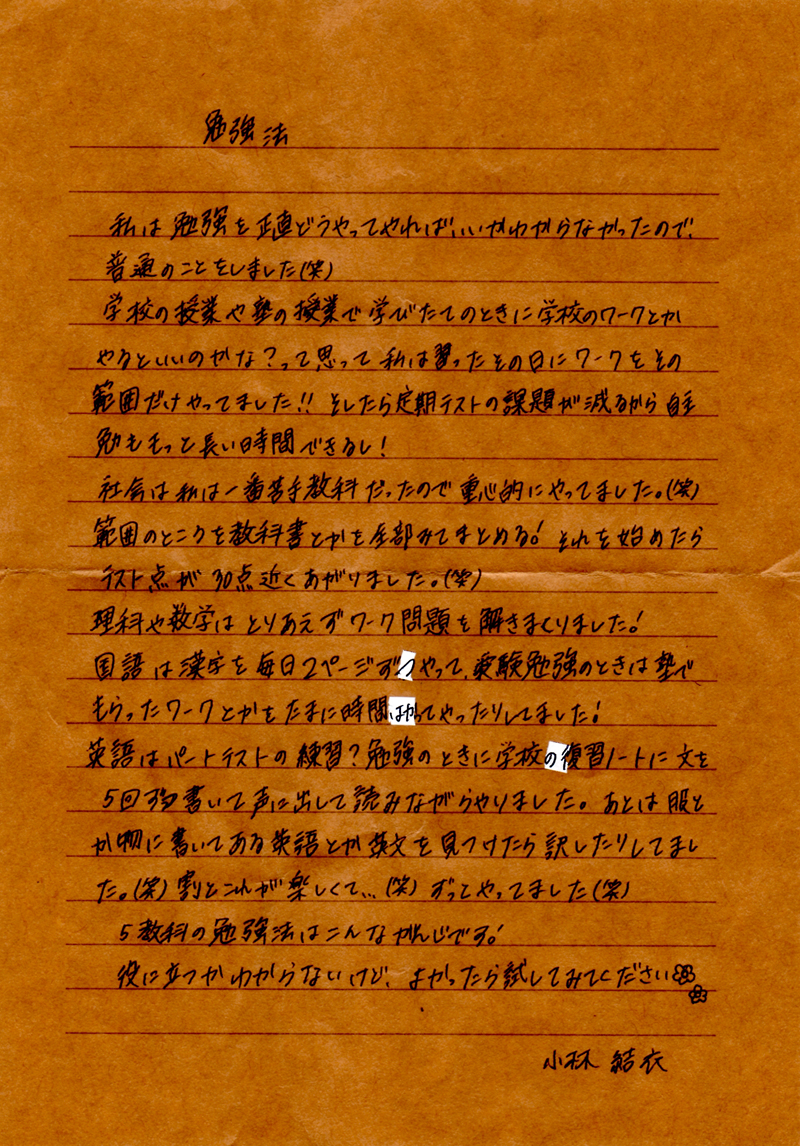 勉強法
私は勉強を正直どうやってやれば、いいかわからなかったので、
普通のことをしました(笑)
学校の授業や塾の授業で学びたてのときに学校のワークとか
やるといいのかな?って思って私は習ったその日にワークをその
範囲だけやってました!! そしたら定期テストの課題が減るから自主
勉ももっと長い時間できるし!
社会は私は一番苦手教科だったので重心的にやってました。(笑)
範囲のところを教科書とかを全部みてまとめる! それを始めたら
テスト点が30点近くあがりました。(笑)
理科や数学はとりあえずワーク問題を解きまくりました!
国語は漢字を毎日2ページずつやって、受験勉強のときは塾で
もらったワークとかをたまに時間はかってやったりしてました!
英語はパートテストの練習?勉強のときに学校の復習ノートに文を
5回ずつ書いて声に出して読みながらやりました。あとは服と
か物に書いてある英語とか英文を見つけたら訳したりしてまし
た。(笑)割とこれが楽しくて…(笑)ずっとやってました(笑)
5教科の勉強法はこんなかんじです!
役に立つかわからないけど、よかったら試してみてください
小林 結衣